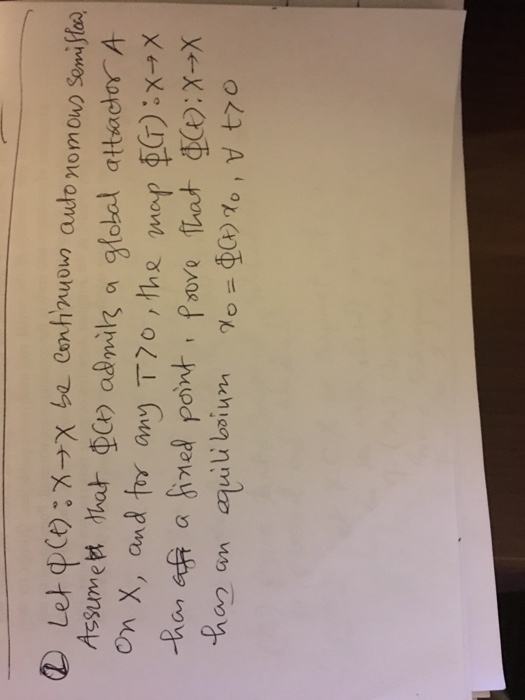 ② Let Φ(t): X→X be continuous autonomous semiflow.
Assume that Φ(t) admits a global attractor A
on X, and for any T>0, the map Φ(T): X→X
has a fixed point, prove that Φ(t): X→X
has an equilibrium x₀ = Φ(t)x₀, ∀ t>0